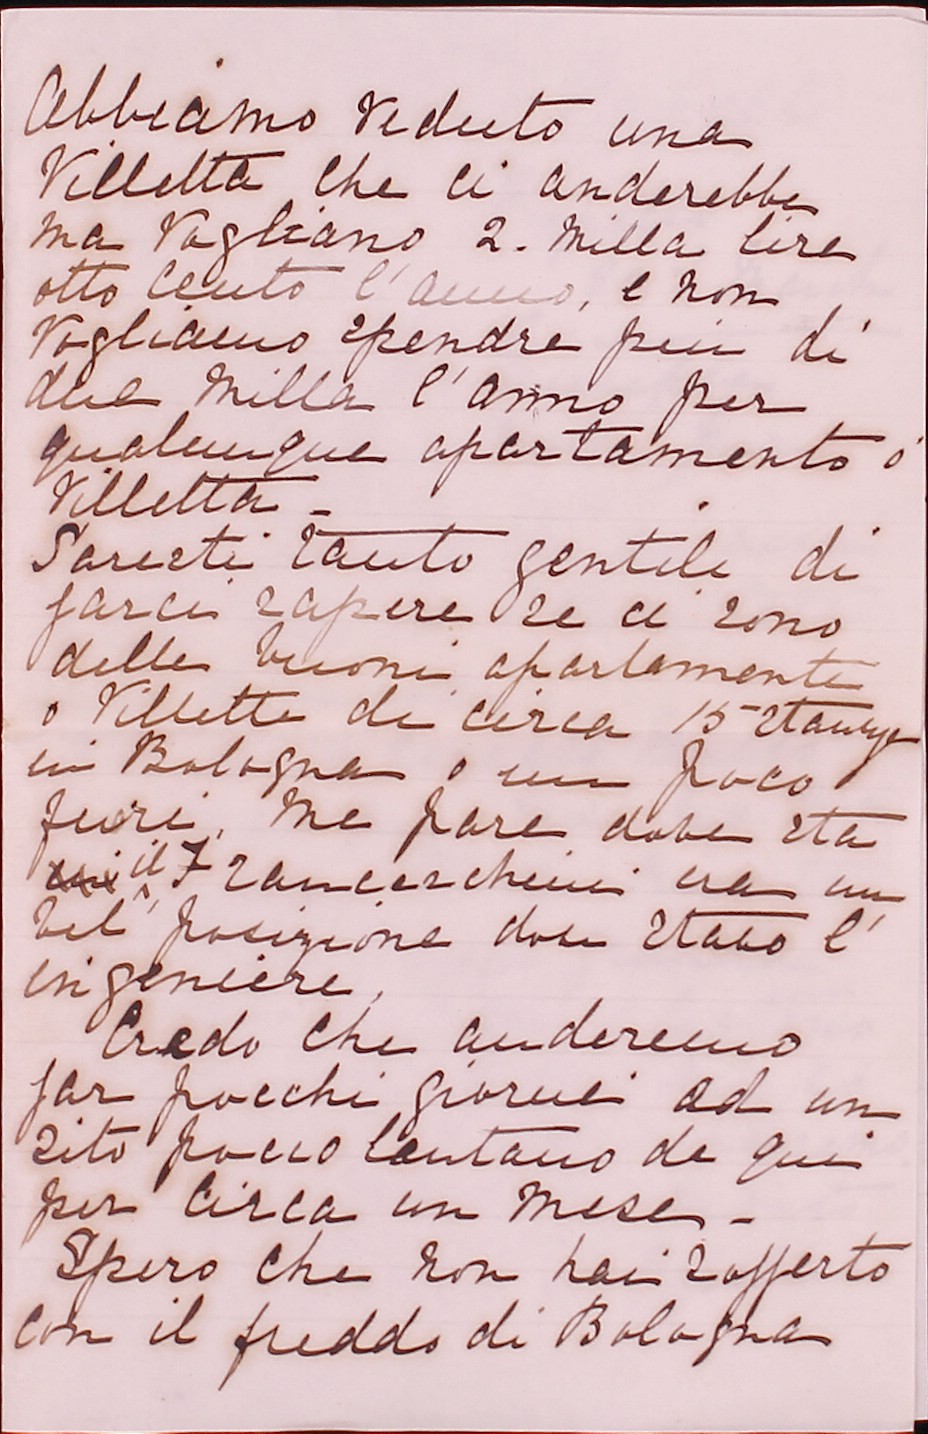 Abbiamo veduto una
Villetta che ci anderebbe
ma Vogliano 2. Milla lire
otto cento l'anno, e non
Vogliamo spendre piu di
due Milla l'anno per
qualunque apartamento ó
Villetta -
Saresti tanto gentile di
farci sapere se ci sono
delle buoni apartamente
o Villette di circa 15 stanze
in Bologna o un poco
fuori. Me pare dove sta
il Franceschini era un
bel posizione dove stavo l'
ingeniere,
Credo che anderemo
far pocchi giorni ad un
sito pocco lontano da qui
per circa un mese -
Spero che non hai sofferto
con il freddo di Bologna